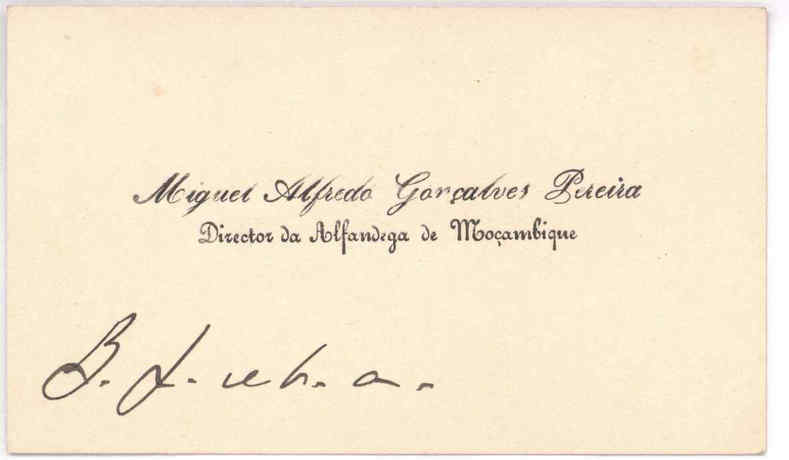 Miguel Alfredo Gonçalves Pereira
Director da Alfandega de Moçambique
B. F. e h. a.